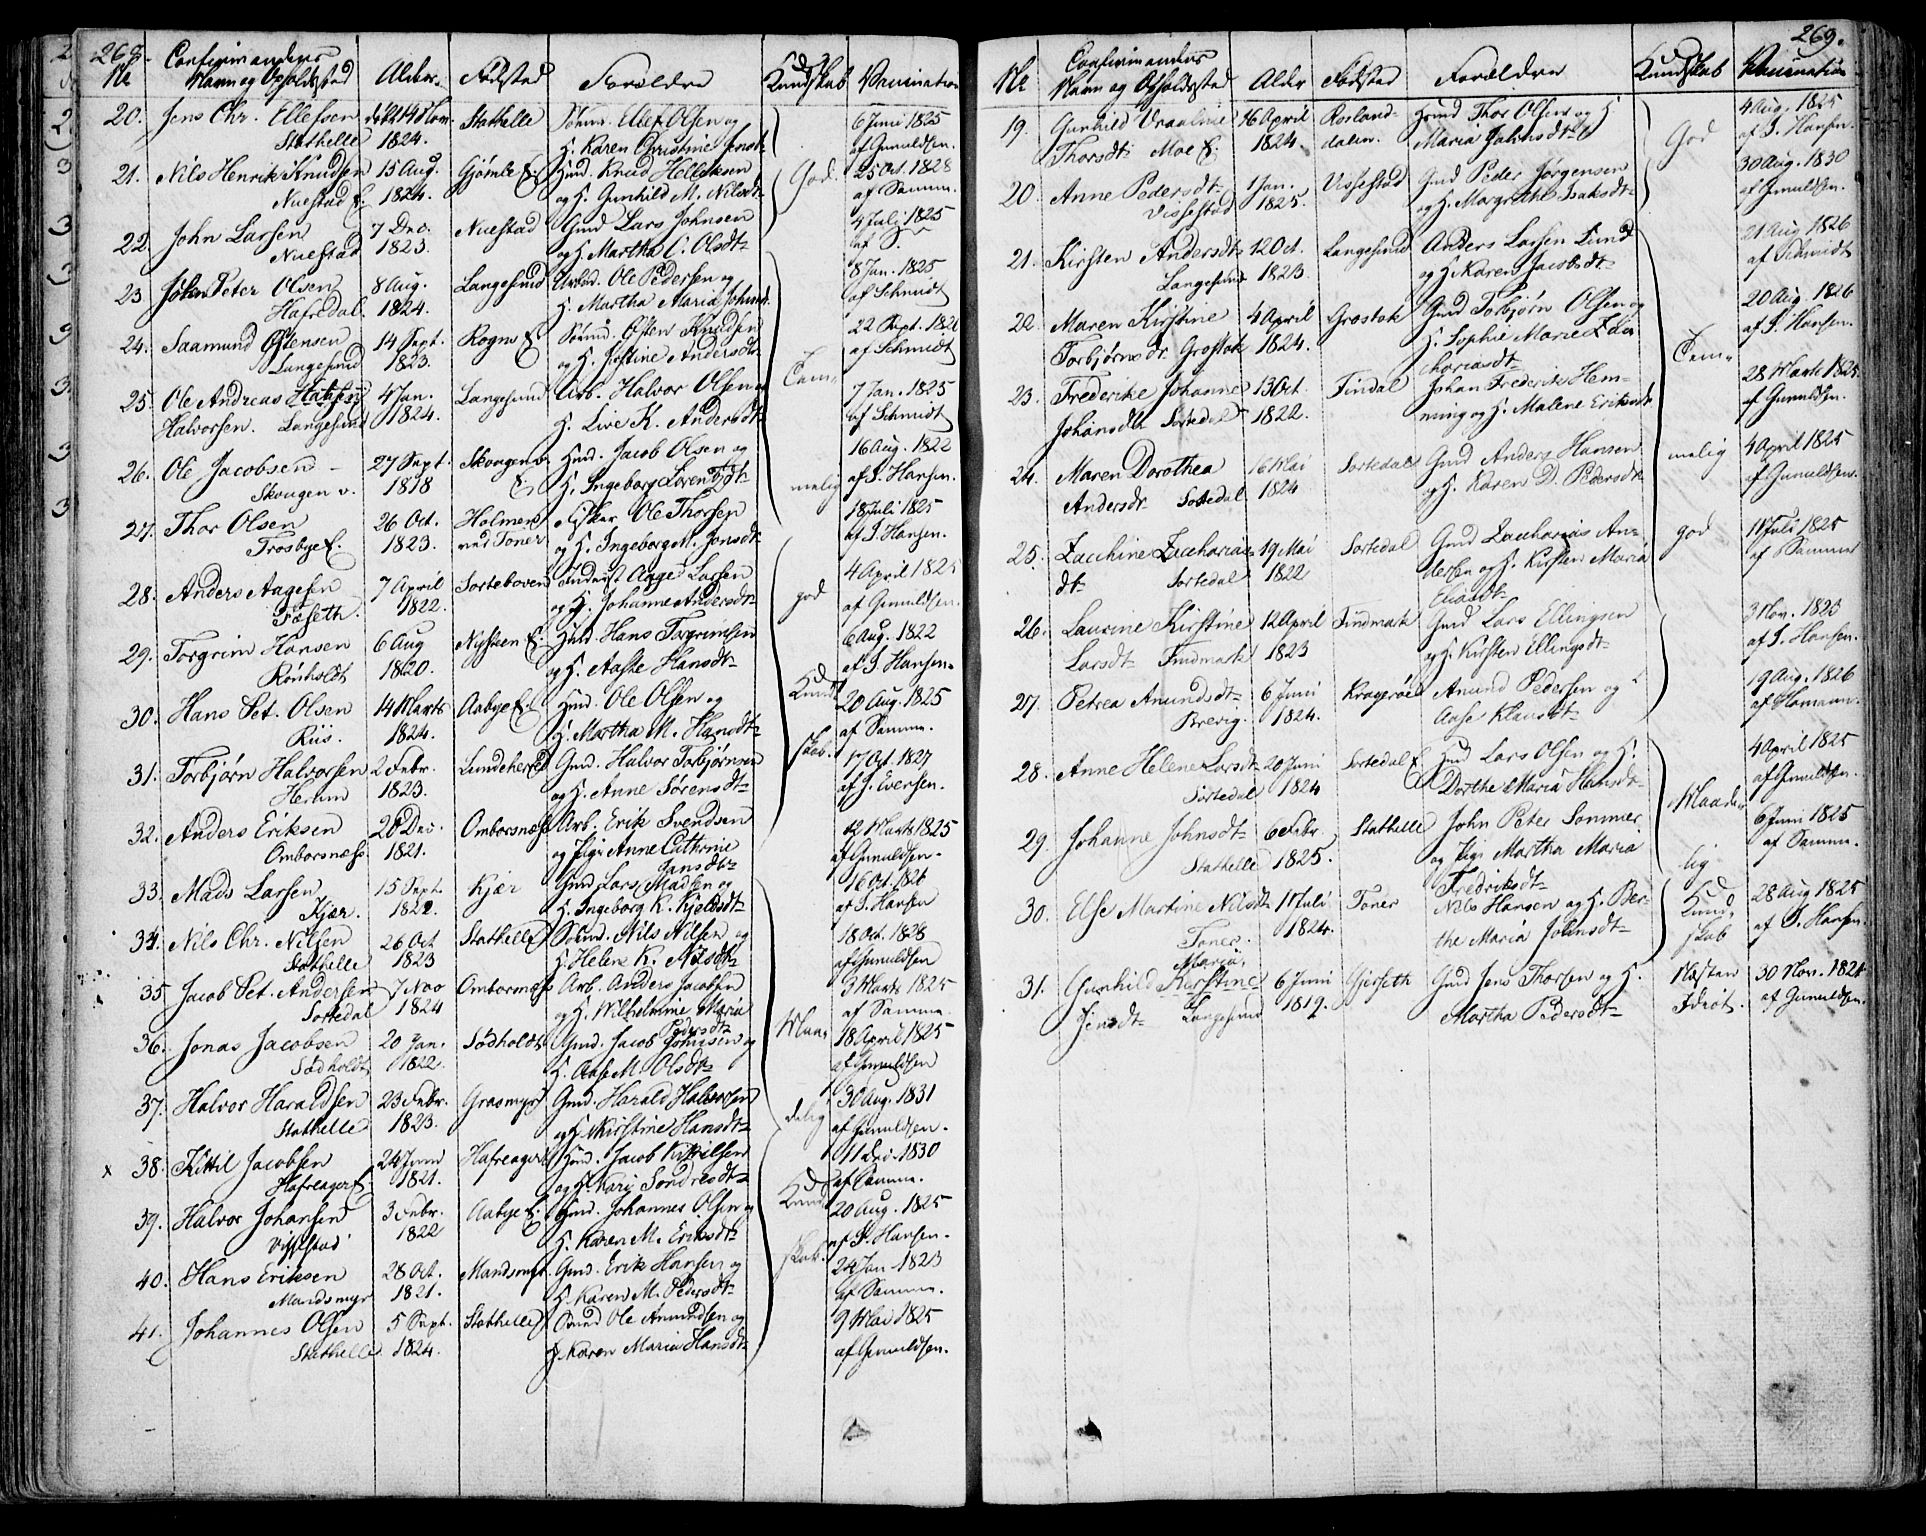 268.
No Confirmandens Navn og Opholdsted Alder Fødsted Forældre Kundskab Vaccination
20. Jens Chr. Ellefsen Stathelle 1824. Stathelle Sømd. Ellef Olsen og
H. Karen Christine Jensdt. 6 Juni 1825 af Gunuldsen.
21. Nils Henrik Knudsen Nuestad E. 15 Aug. 1824. Gjømle E. Huusmd. Knud Helleksen
og H. Gunhild M. Nilsdt God. 25 Oct. 1828 af Samme.
22. John Larsen Nuestad 7 Dec. 1823. Nuestad Gmd Lars Johnsen
og H. Martha C. Olsdt 4 Juli 1825 af S.
23 Peter Olsen Hafredal 8 Aug. 1824. Langesund Arbmd. Ole Pedersen og
H. Martha Maria Johnsd. 8 Jan. 1825 af Schmidt
24. Saamund Østensen Langesund 14 Sept. 1823. Rogne E. Sømd. Østen Knudsen
og H. Justine Andersdt 22 Sept. 1826 af Schmidt
25. Ole Andreas Halvorsen. Langesund 4 Jan. 1824. Langesund Arb. Halvor Olsen og
H. Live K. Andersdt Tem- 7 Jan. 1825 af Schmidt
26. Ole Jacobsen Skougen v. 27 Sept. 1818 Skougen v. E. Hmd. Jacob Olsen og
H. Ingeborg Lorentzdt melig 16 Aug. 1822 af S. Hansen.
27. Thor Olsen Trosbye E. 26 Oct. 1823. Holmen ved Toner Fisker Ole Thorsen
og H. Ingeborg M. Jonsdt 18 Juli 1825 af S. Hansen.
28. Anders Aagesen Fæseth. 7 April 1822. Sorteboven Inderst Aage Larsen
og H. Johanne Andersdt god 4 April 1825 af Gunuldsen.
29. Torgrim Hansen Rønholdt 6 Aug 1820. Nysteen E. Hmd Hans Torgrimsen
og H. Aaste Hansdt 6 Aug. 1822 af S. Hansen.
30. Hans Pet. Olsen Riis. 14 Marts 1824. Aabye E. Hmd. Ole Olsen og
H. Martha M. Hansdt Kund- 20 Aug. 1825 af Samme.
31. Torbjørn Halvorsen Herum 2 Febr. 1823. Lundeherred Gmd. Halvor Torbjørnsen
og H. Anne Sørensdt skab. 17 Oct. 1827 af J. Eversen.
32. Anders Eriksen Omborsnæss. 28 Dec. 1821. Omborsnæss Arb. Erik Svendsen
og Pige Anne Cathrine Jansdt 12 Marts 1825 af Gunuldsen.
33. Mads Larsen Kjær. 15 Sept. 1822. Kjær Gmd. Lars Madsen og
H. Ingeborg K. Kjeldsdt 16 Oct. 1826 af S. Hansen
34. Nils Chr. Nilsen Stathelle 26 Oct 1823 Stathelle Sømd. Nils Nilsen og
H. Helene K. Nilsdt 18 Oct. 1828 af Gunuldsen
35 Jacob Pet. Andersen Sortedal 7 Nov 1824 Ombornæss Arb. Anders Jacobsen
og H. Wilhelmine Maria Pedersdt 3 Marts 1825 af Samme
36. Jonas Jacobsen Sødholdt 20 Jan. 1822. Sødholdt Gmd. Jacob Johnsen og
H. Aase M. Olsdt Maa- 18 April 1825 af Gunuldsen
37. Halvor Haraldsen Stathelle 23 Febr. 1823. Grasmyr Gmd. Harald Halvorsen
og H. Kirstine Hansdt delig 30 Aug. 1831 af Gunuldsen.
x 38. Kittil Jacobsen Hafreager E. 24 Juni 1821. Hafreager Hmd. Jacob Kittilsen
og H. Kari Sondresdt 11 Dec. 1830 af Samme.
39. Halvor Johansen Vissestad 3 Febr. 1822 Aabye E. Hmd. Johannes Olsen og
H. Karen M. Eriksdt Kund- 20 Aug. 1825 af S. Hansen.
40. Hans Eriksen Mandsmyr 28 Oct. 1821. Mandsmyr Gmd. Erik Hansen og
H. Karen M. Pedersdt skab. 24 Jan 1823 af Samme.
41. Johannes Olsen Stathelle 5 Sept. 1824. Stathelle Sømd Ole Amundsen og
H. Karen Maria Hansdt 9 Mai 1825 af Gunuldsen.
269.
No Confirmandens Navn og Opholdsted Alder Fødsted Forældre Kundskab Vaccination
19. Gunhild Vraaline Thorsdt. Moe E. 16 April 1824. Roslanddalen. Hmd Thor Olsen og H
Maria Johnsdt God 4 Aug. 1825 af S. Hansen.
20. Anne Pedersdt Vissestad 1 Jan. 1825. Vissestad Gmd Peder Jørgensen
og H. Margrethe Isaksdt 30 Aug. 1830 af Gunuldsen.
21. Kirsten Andersdt Langesund 12 Oct. 1823. Langesund Anders Larsen Lund
og H. Karen Jacobsdt 21 Aug 1826 af Schmidt
22. Maren Kirstine Torbjørnsdr. Grostok 4 April 1824. Grostok Gmd Torbjørn Olsen og
H. Sophie Marie Zachariasdt Tem- 20 Aug. 1826 af S. Hansen.
23. Frederike Johanne Johansdt Sortedal 13 Oct 1822. Findal Johan Frederik Hemming
og H. Malene Eriksdt 28 Marts 1825. af Gunuldsen.
24. Maren Dorothea Andersdt Sortedal 16 Mai 1824 Sortedal Gmd Anders Hansen
og H. Karen D. Pedersdt melig 4 April 1825 af Gunuldsen.
25. Zacchine Zachariasdt Sortedal 19 Mai 1822 Sortedal Gmd Zacharias Andersen
og H. Kirsten Maria god 11 Juli 1825 af Samme
26. Laurine Kirstine Larsdt Findmark 12 April 1823 Findmark Gmd Lars Ellingsen
og H. Kirsten Ellingsdt 3 Nov. 1823 af S. Hansen.
27. Petrea Amundsdt Brevig. 6 Juni 1824. Kragerøe Amund Pedersen og
Aase Klausdt 19 Aug. 1826 af Homann.
28. Anne Helene Larsdt Sortedal 20 Juni 1824 Sortedal E. Hmd Lars Olsen og H.
Dorthe Maria Hansdt Maade- 4 April 1825 af Gunuldsen.
29. Johanne Johnsdt Stathelle 6 Febr. 1825. Stathelle John Peter Sommer
og Pige Martha Maria Fredriksdt lig 6 Juni 1825 af Samme.
30. Else Martine Nilsdt Toner. 1 Juli 1824. Toner Nils Hansen og H. Berthe
Maria Johnsdt Kundskab 28 Aug 1825 af S. Hansen.
31. Gunhild Maria Kirstine Jensdt Langesund 6 Juni 1819. Gjerseth Gmd Jens Thorsen og H.
Martha Pedersdt Næsten Idiot. 30 Nov. 1824 af Gunuldsen.